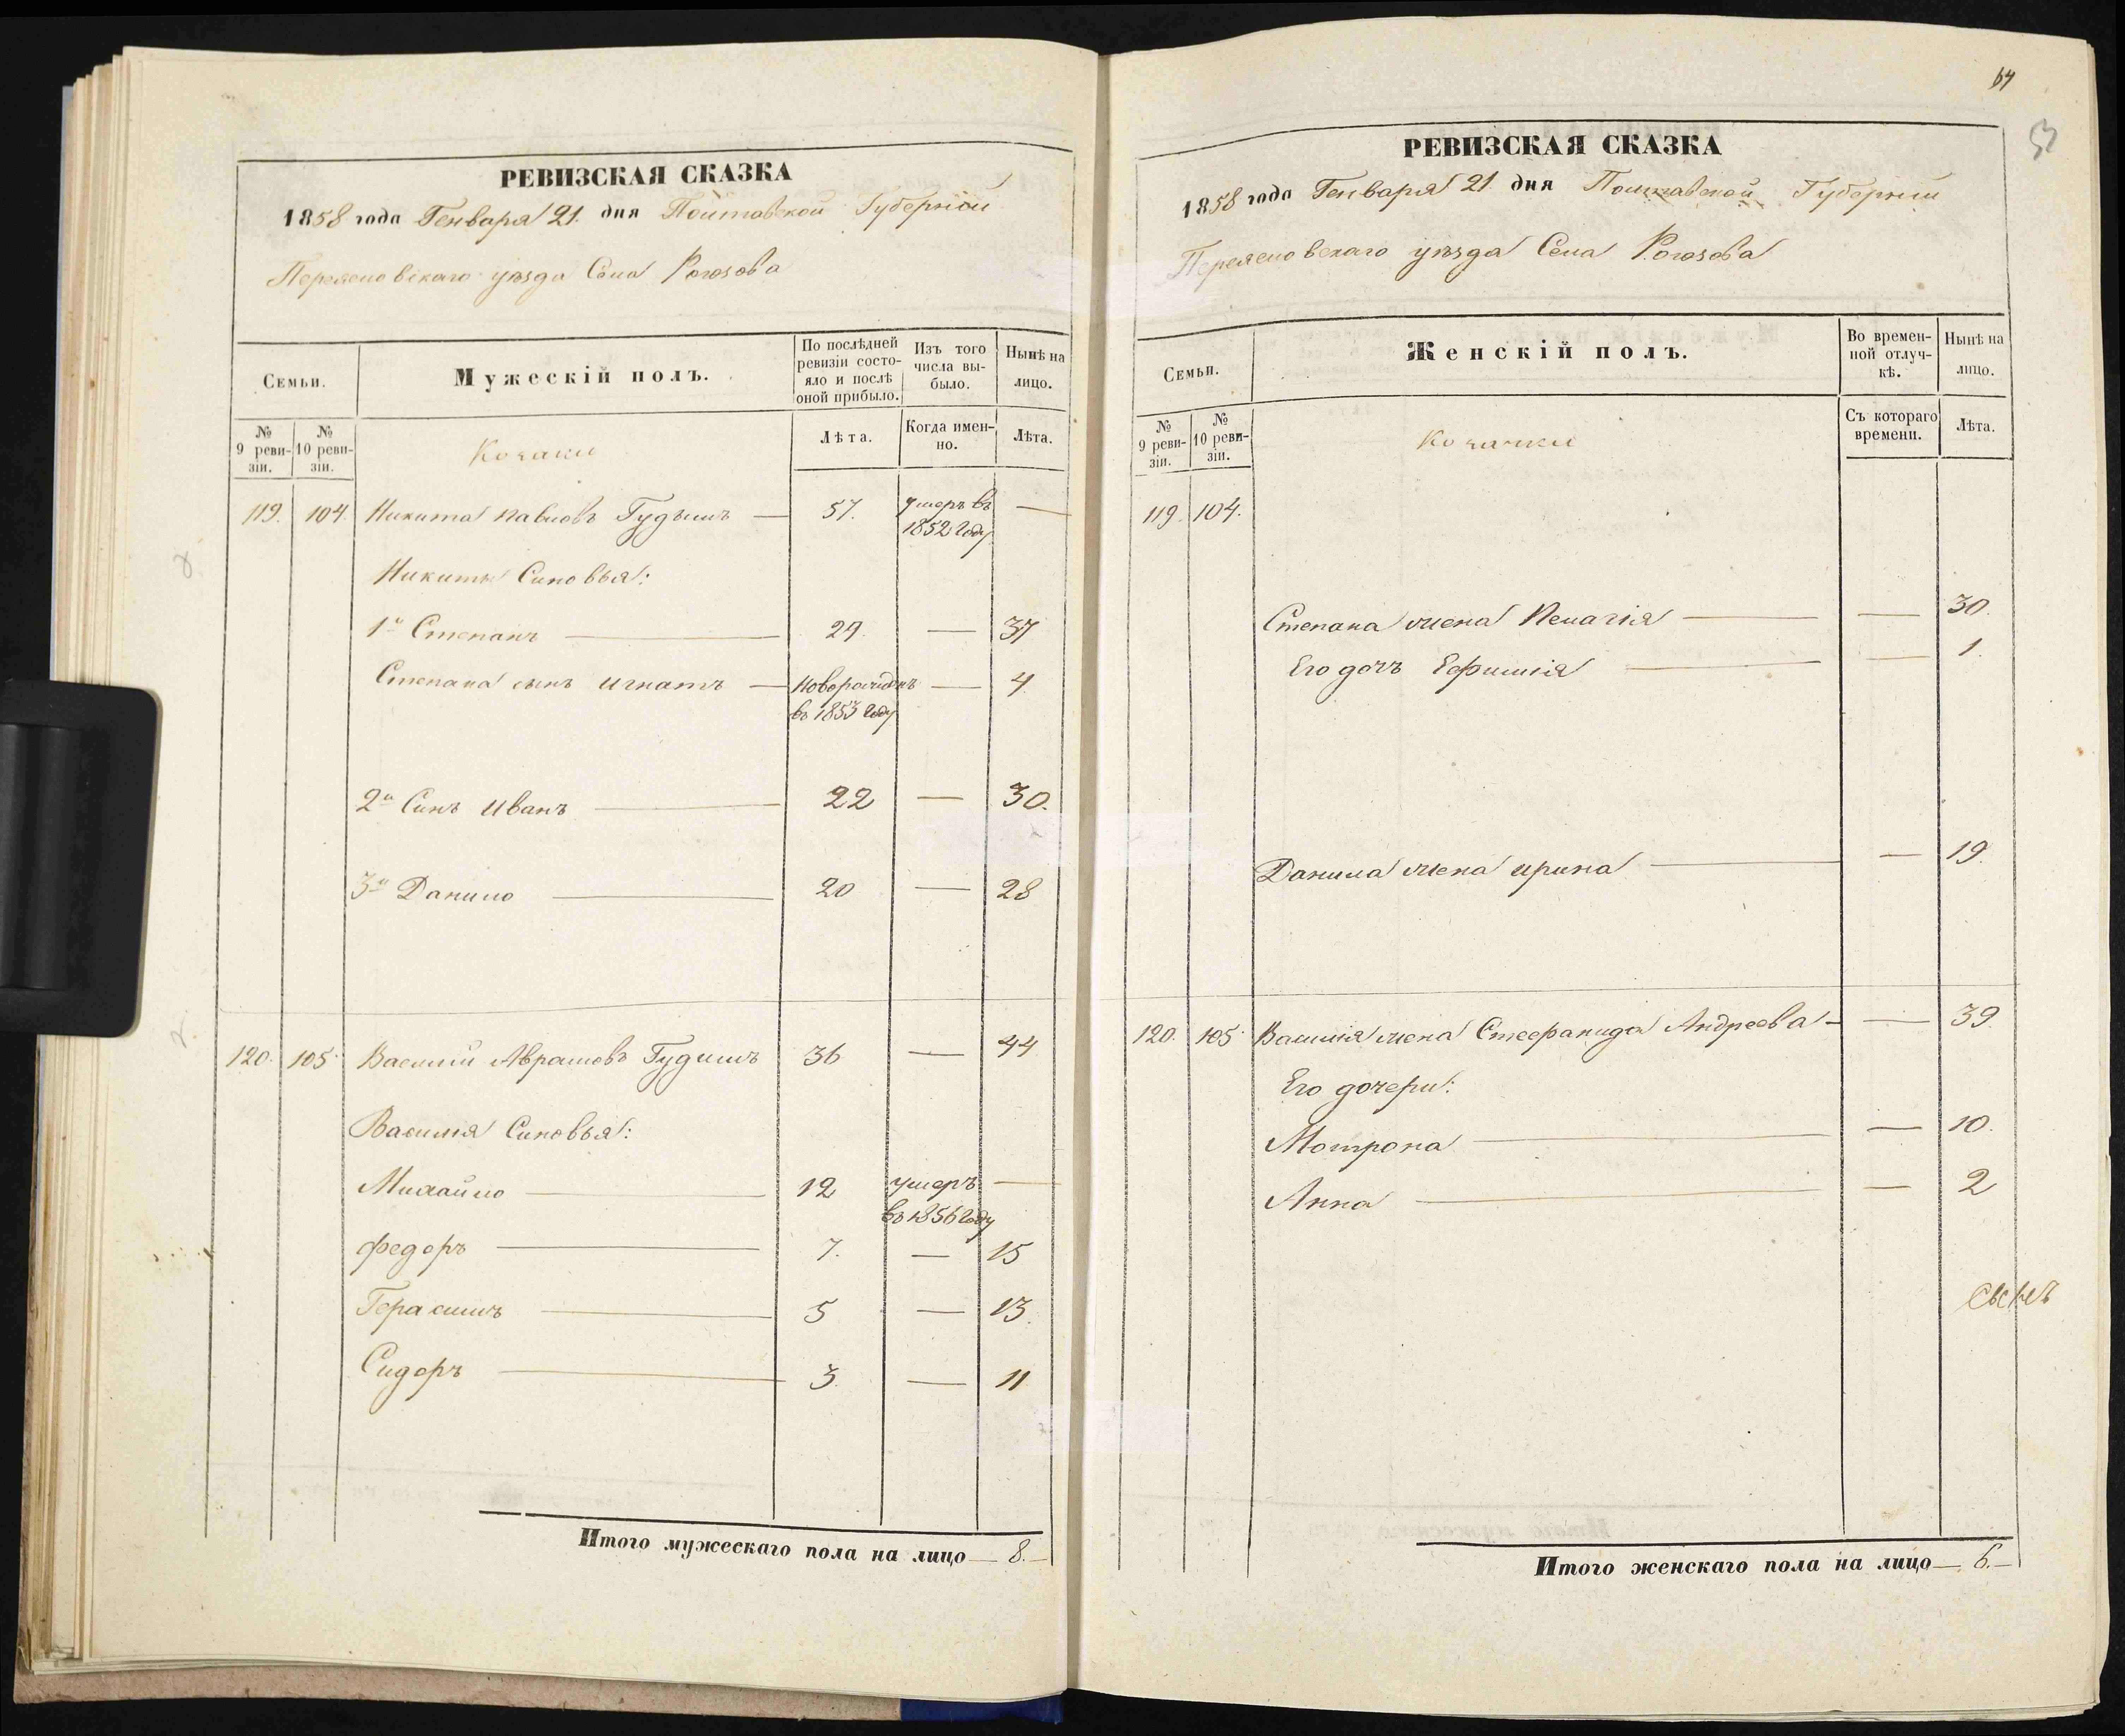 РЕВИЗСКАЯ СКАЗКА
1858 года Генваря 21. дня Полтавской Губерніи
Переяславскаго уѣзда Села Рогозова
Семьи.
Мужескій полъ.
По послѣдней ревизіи состояло и послѣ оной прибыло.
Изъ того числа выбыло.
Нынѣ на лицо.
№ 9 ревизіи.
№ 10 ревизіи.
Козаки
Лѣта.
Когда именно.
Лѣта.
119. 104. Никита Павловъ Гудымъ — 57. умеръ въ 1852 году —
Никиты Синовья:
1й Степанъ — 29. — 37
Степана сынъ Игнатъ — Новорожденъ в 1853 году — 4
2й Синъ Иванъ — 22 — 30.
3й Данило — 20 — 28
120. 105. Василий Аврамовъ Гудимъ 36 — 44
Василія Синовья:
Михайло — 12 умеръ въ 1856 году —
Федоръ — 7. — 15
Герасимъ — 5 — 13.
Сидоръ — 3. — 11
Итого мужескаго пола на лицо — 8. —
64
53
РЕВИЗСКАЯ СКАЗКА
1858 года Генваря 21 дня Полтавской Губерніи
Переяславскаго уѣзда Села Рогозова
Семьи.
Женскій полъ.
Во временной отлучкѣ.
Нынѣ на лицо.
№ 9 ревизіи.
№ 10 ревизіи.
Козачки
Съ котораго времени.
Лѣта.
119. 104.
Степана жена Пелагія — — 30.
Его дочъ Ефимія — — 1.
Данила жена Ирина — — 19.
120. 105. Василія жена Стефанида Андреева — — 39
Его дочери:
Мотрона — — 10.
Анна — — 2
Итого женскаго пола на лицо — 6. —